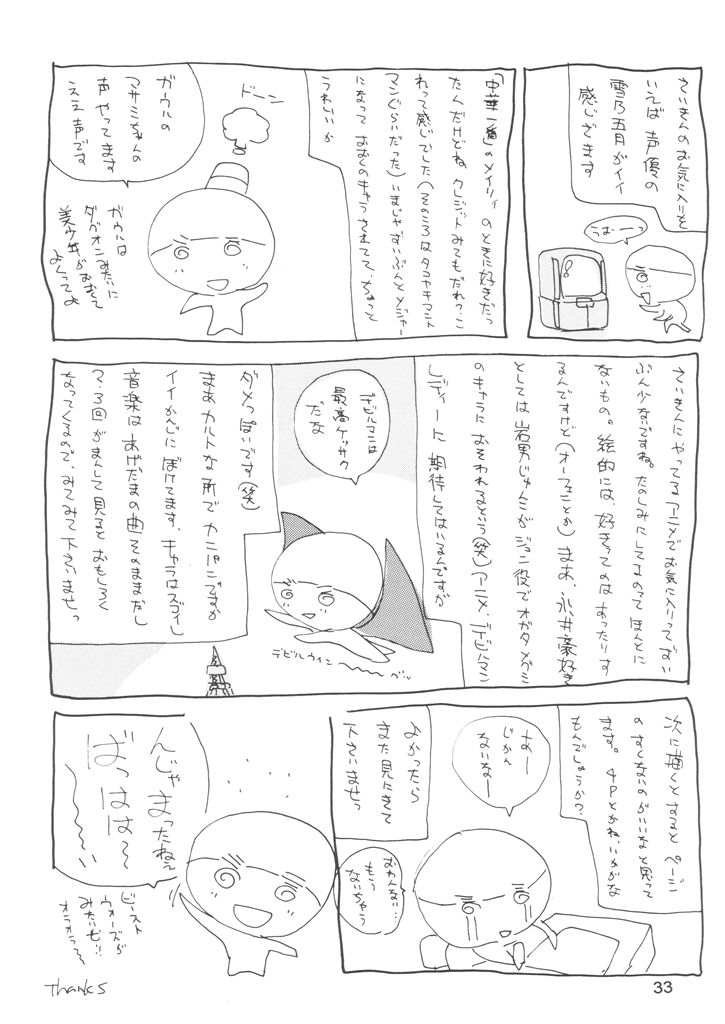 さいきんのお気に入りを
いえば 声優の
雪乃五月がイイ
感じざます
うおーっ
「中華一番」のメイリィ のときに好きだっ
たんだけどね クレジットみてもだれ?こ
れって感じでした(そのころはタコヤキマント
マンぐらいだった)いまじゃずいぶんとメジャー
になって
うれしいか
ドーン
ガウルの
マサミちゃんの
声 やってます
ええ 声です
ガウルは
ダグオンみたいに
美少年がおおくて
よくってよ
さいきんにやってるアニメでお気に入りって ずい
ぶん少ないですね。たのしみにしてるのって ほんとに
ないもの。絵的には、好きってのは あったりす
るんですけど(オーフェンとか)まあ、永井豪好き
としては岩男じゅんこがジュン役でオガタメグミ
のキャラに おそわれるという(笑)アニメ・デビルマン
レディーに 期待してはいるんですが
デビルマンは
最高ケッサク
だな
デビルウイン〜〜
グッ
ダメっぽいです(笑)
まあ カルトな所で カンパニですか
イイかんじに ぼけてます。キャラはスゴイし
音楽は あげだまの曲そのままだし
2・3回 がまんして見ると おもしろく
なってくるので、みてみて 下さいませっ
次に描くとすると ページ
の すくないのがいいなと思って
ます。4Pとかね、いかがな
もんでしょうか?
あー
じかん
ないなー
よかったら
また見にきて
下さいませっ
おわんない…
もう
ないちゃう
んじゃまったねぇ
ばっはは〜い
ビースト
ウォーズが
みたいぜ!!
オラオラっ〜
Thanks
33